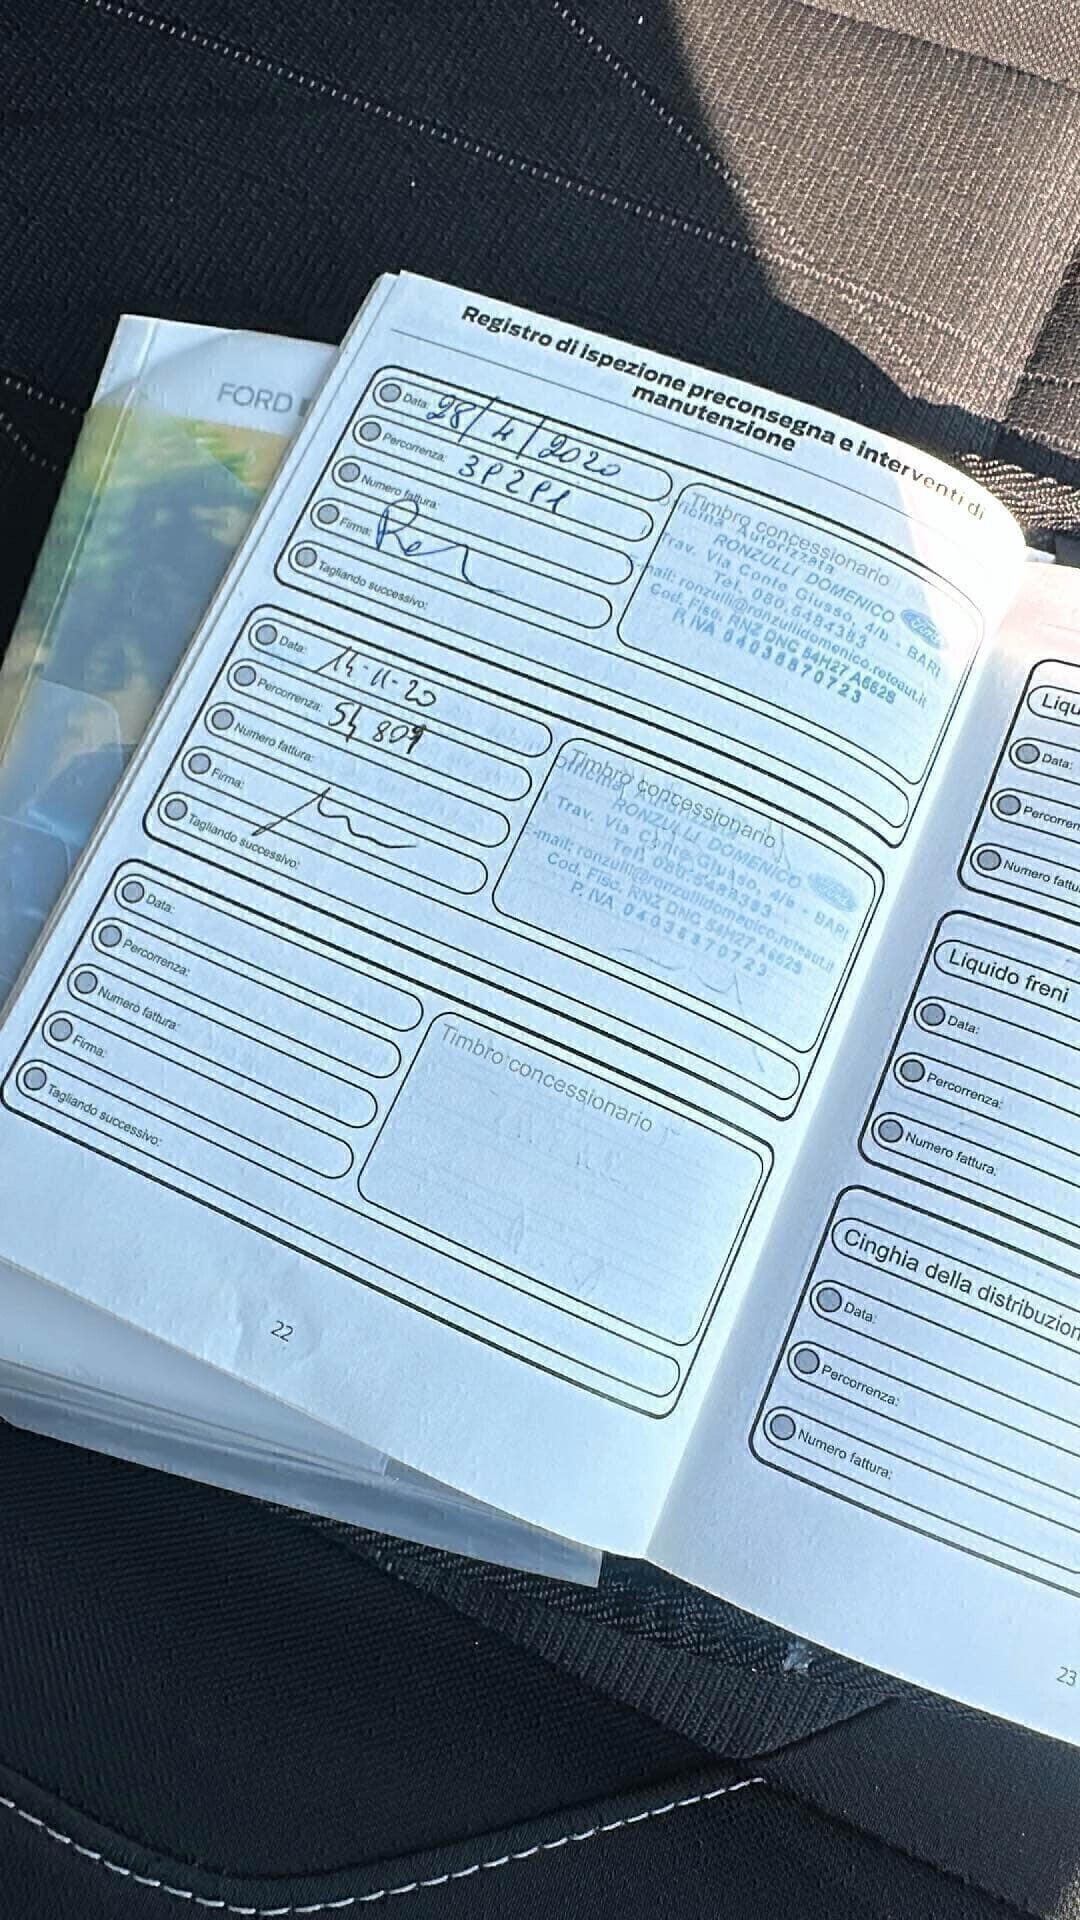 FORD
Registro di ispezione preconsegna e interventi di
manutenzione
Data: 28/4/2020
Percorrenza: 39291
Numero fattura:
Firma:
Tagliando successivo:
Timbro concessionario
Officina Autorizzata
RONZULLI DOMENICO
Trav. Via Conte Giusso, 4/b - BARI
Tel. 080.5484383
E-mail: ronzulli@ronzullidomenico.reteaut.it
Cod. Fisc. RNZ DNC 54H27 A662S
P. IVA 04038870723
Ford
Data: 14-11-20
Percorrenza: 54 809
Numero fattura:
Firma:
Tagliando successivo:
Timbro concessionario
Officina
RONZULLI DOMENICO
Trav. Via Conte Giusso, 4/b - BARI
Tel. 080.5484383
E-mail: ronzulli@ronzullidomenico.reteaut.it
Cod. Fisc. RNZ DNC 54H27 A662S
P. IVA 04038870723
Data:
Percorrenza:
Numero fattura:
Firma:
Tagliando successivo:
Timbro concessionario
22
Liqu
Data:
Percorren
Numero fattu
Liquido freni
Data:
Percorrenza:
Numero fattura:
Cinghia della distribuzion
Data:
Percorrenza:
Numero fattura:
23